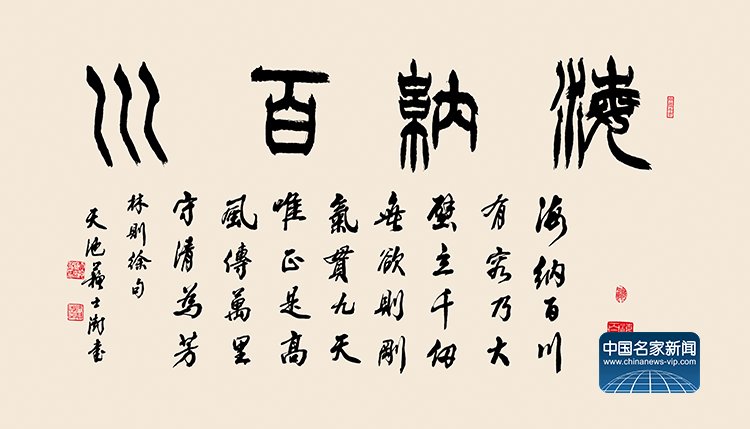 海納百川
海納百川
有容乃大
壁立千仞
無欲則剛
氣貫九天
唯正是高
風傳萬里
守清為芳
林則徐句
天池蘇士澍書
中国名家新闻
www.chinanews-vip.com